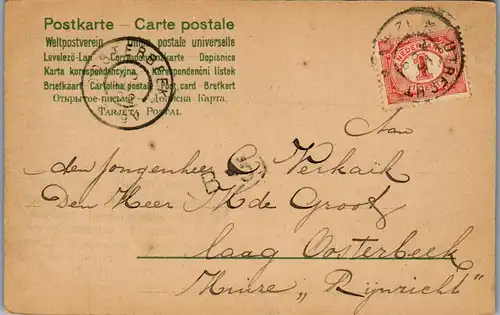 Postkarte – Carte postale
Weltpostverein – Union postale universelle
Levelező-Lap – Correspondenzkarte Dopisnice
Karta korespondencyjna Korespondenční lístek
Briefkaart – Cartolina postale – Post card – Brefkort
Открытое письмо – Дописна Карта
Tarjeta Postal
OOSTERBEEK
UTRECHT
NEDERLAND
1
Aan
den Jongenheer C Verkaik
Den Heer M de Groot
laag Oosterbeek
Huize „Rijnzicht"